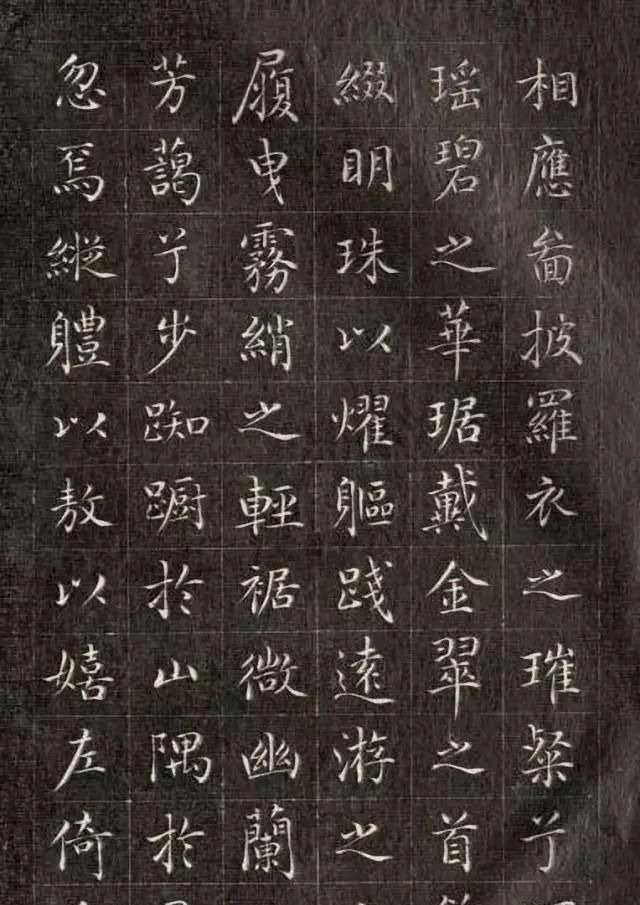 相應啚披羅衣之璀粲兮
瑶碧之華琚戴金翠之首
綴明珠以燿軀踐遠游之
履曳霧綃之輕裾微幽蘭
芳藹兮步踟蹰於山隅於
忽焉縱軆以敖以嬉左倚